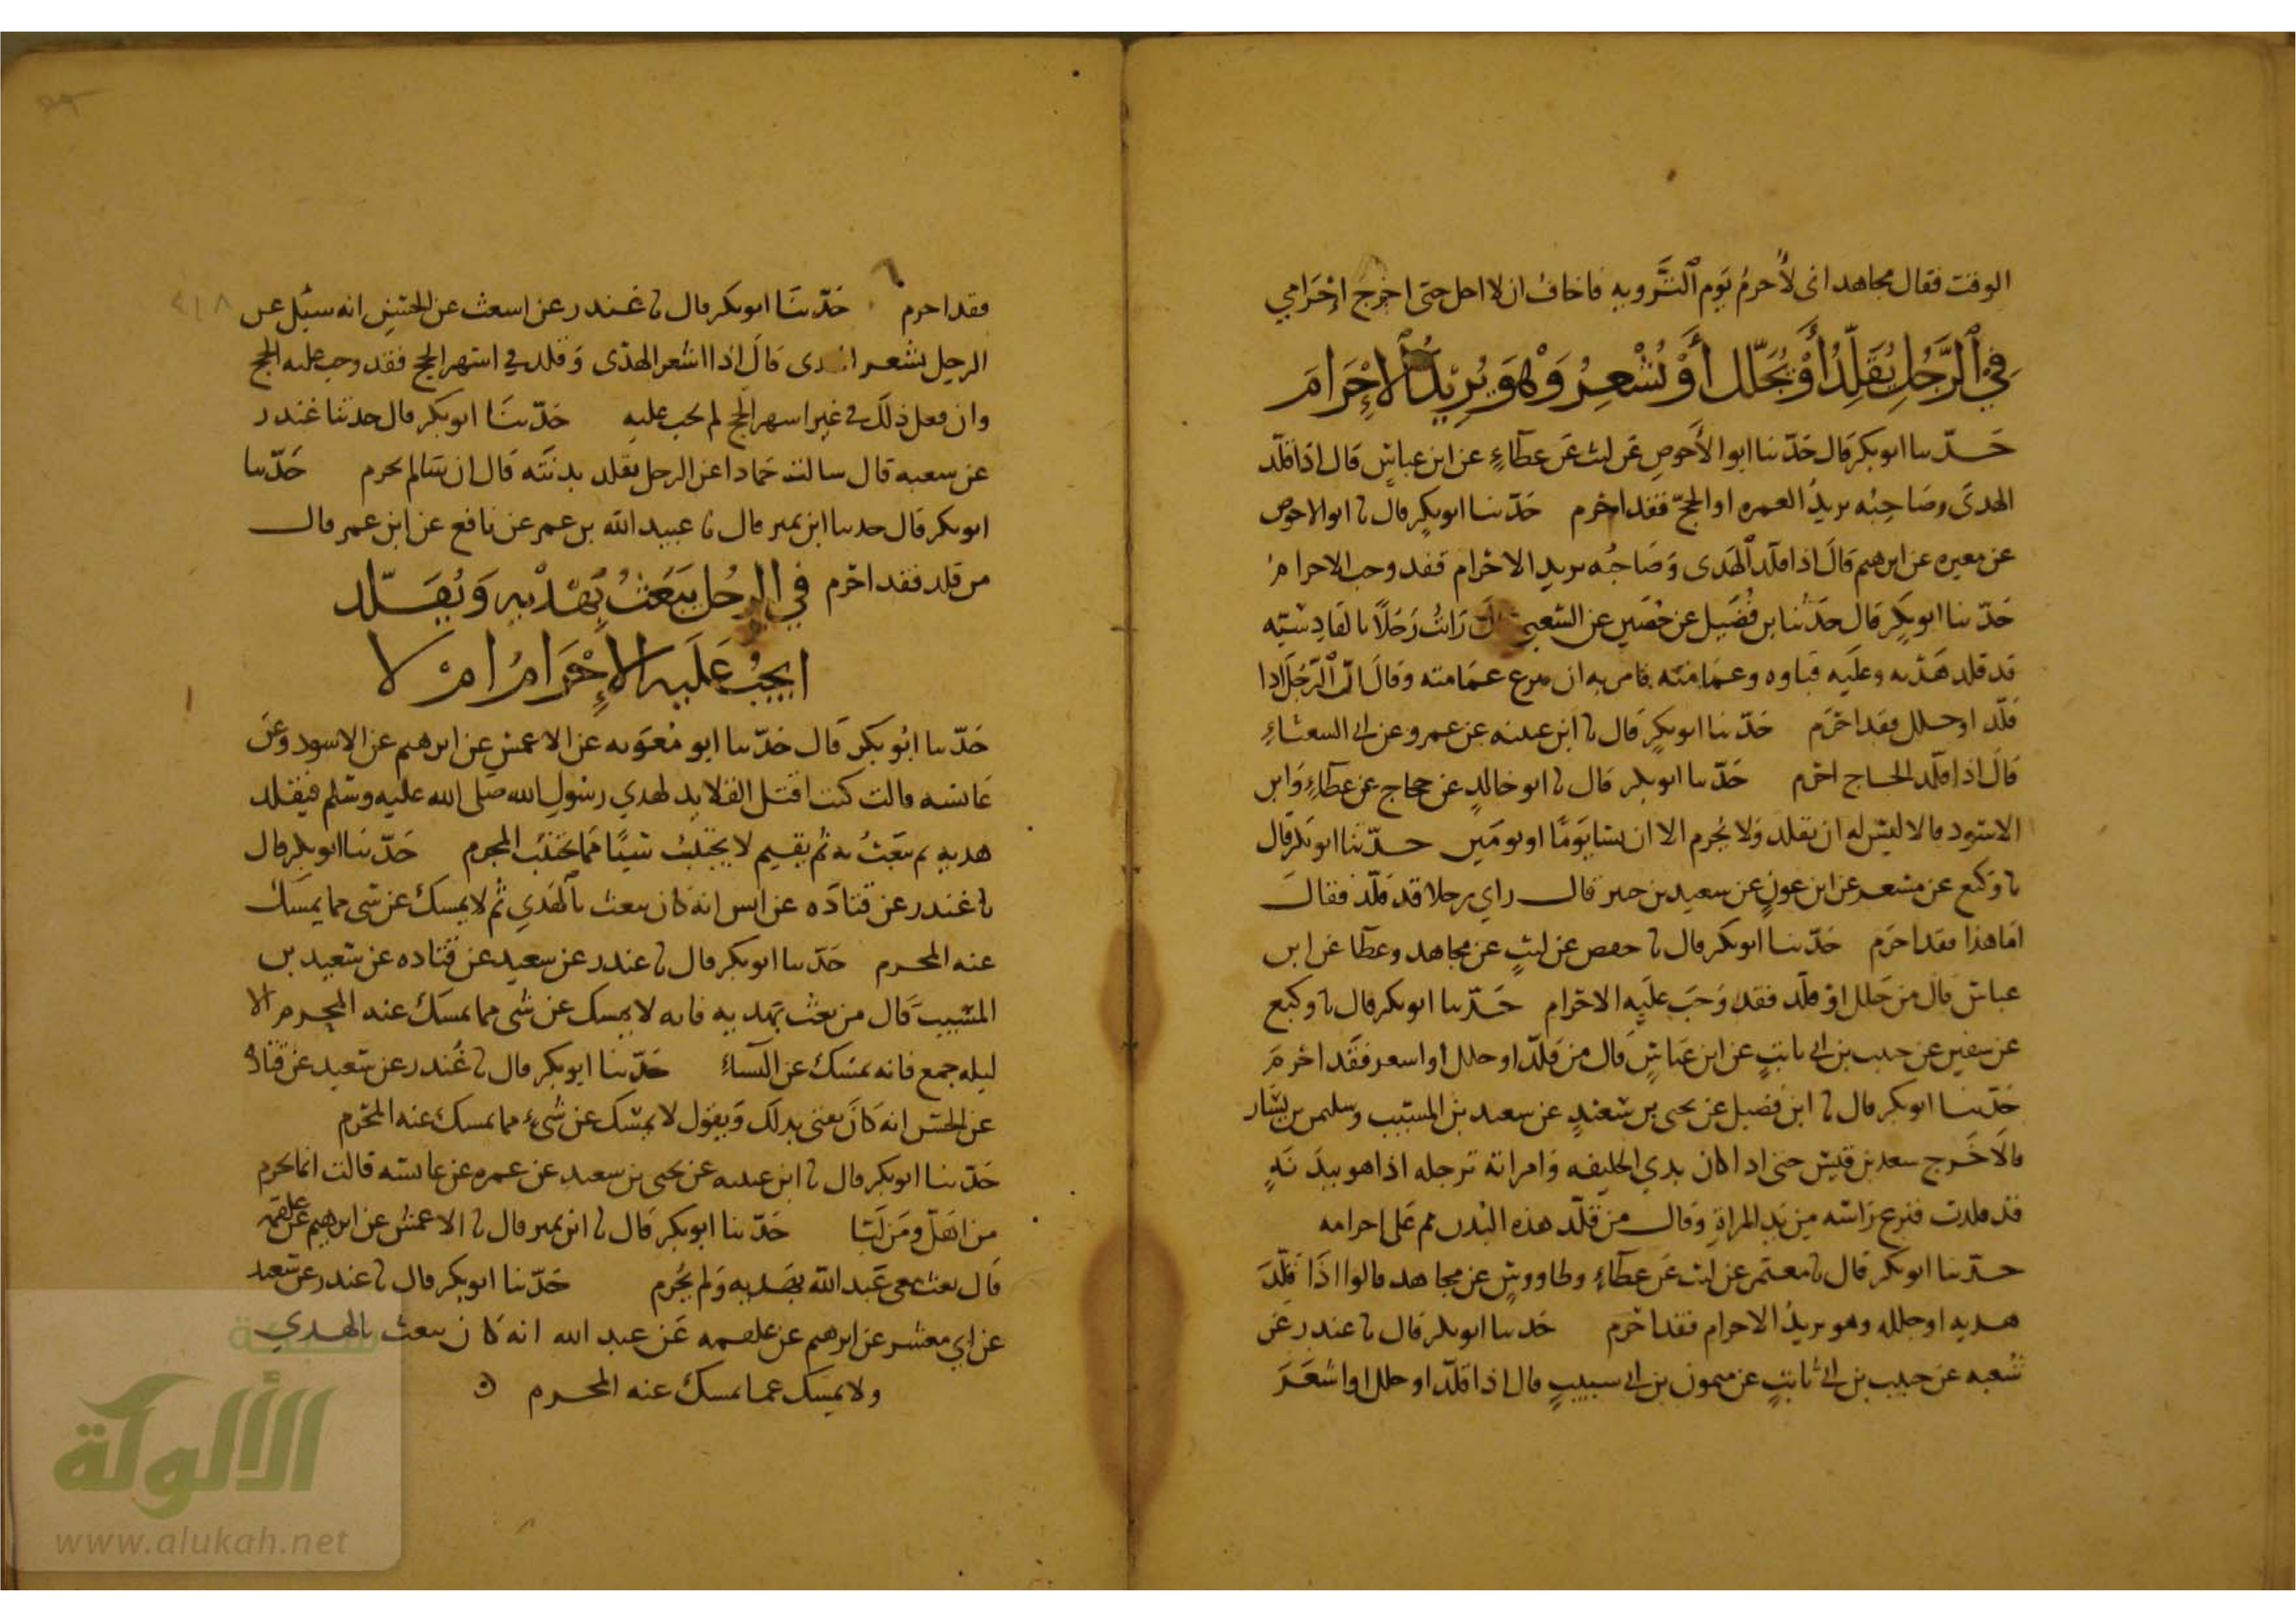 الوقت فقال مجاهد انى لأحرم يوم التروية فاخاف ان لا احل حتى اخرج إحرامي
في الرجل يقلد أو يجلل أو يشعر وهو يريد الإحرام
حدثنا ابو بكر قال حدثنا ابو الأحوص عن ليث عن عطاء عن ابن عباس قال اذا قلد
الهدى وصاحبه يريد العمره او الحج فقد احرم حدثنا ابو بكر قال نا ابو الاحوص
عن مغيره عن ابرهيم قال اذا قلد الهدى وصاحبه يريد الاحرام فقد وجب الاحرام
حدثنا ابو بكر قال حدثنا بن فضيل عن حصين عن الشعبي قال رايت رجلا بالقادسيه
قد قلد هديه وعليه قباوه وعمامته فامر به ان ينزع عمامته وقال ان الرجل اذا
قلد او جلل فقد احرم حدثنا ابو بكر قال نا ابن عيينه عن عمرو عن ابي الشعثاء
قال اذا قلد الحاج احرم حدثنا ابو بكر قال نا ابو خالد عن حجاج عن عطاء وابن
الاسود قالا ليس له ان يقلد ولا يحرم الا ان يشا يوما او يومين حدثنا ابو بكر قال
نا وكيع عن مسعر عن ابن عون عن سعيد بن جبير قال راى رجلا قد قلد فقال
اما هذا فقد احرم حدثنا ابو بكر قال نا حفص عن ليث عن مجاهد وعطا عن ابن
عباس قال من جلل او قلد فقد وجب عليه الاحرام حدثنا ابو بكر قال نا وكيع
عن سفين عن حبيب بن ابي ثابت عن ابن عباس قال من قلد او جلل او اشعر فقد احرم
حدثنا ابو بكر قال نا ابن فضيل عن يحيى بن سعيد عن سعيد بن المسيب وسليمن بن يسار
قالا خرج سعد بن قيس حتى اذا كان بذي الحليفه وامراته ترجله اذا هو ببدنة
قد قلدت فنزع راسه من يد المراة وقال من قلد هذه البدن ثم على احرامه
حدثنا ابو بكر قال نا معتمر عن ليث عن عطاء وطاووس عن مجاهد قالوا اذا قلد
هديه او جلله وهو يريد الاحرام فقد احرم حدثنا ابو بكر قال نا غندر عن
شعبه عن حبيب بن ابي ثابت عن ميمون بن ابي شبيب قال اذا قلد او جلل او اشعر
فقد احرم حدثنا ابو بكر قال نا غندر عن اشعث عن الحسن انه سئل عن
الرجل يشعر قال اذا اشعر الهدى وقلد في اشهر الحج فقد وجب عليه الحج
وان فعل ذلك في غير اشهر الحج لم يجب عليه حدثنا ابو بكر قال حدثنا غندر
عن شعبه قال سالت حمادا عن الرجل يقلد بدنته قال ان شا لم يحرم حدثنا
ابو بكر قال حدثنا ابن نمير قال نا عبيد الله بن عمر عن نافع عن ابن عمر قال
من قلد فقد احرم في الرجل يبعث بهديه ويقلد
ايجب عليه الإحرام ام لا
حدثنا ابو بكر قال حدثنا ابو معويه عن الاعمش عن ابرهيم عن الاسود وعن
عائشه قالت كنت افتل القلايد لهدي رسول الله صلى الله عليه وسلم فيقلد
هديه ثم يبعث به ثم يقيم لا يجتنب شيئا مما يجتنب المحرم حدثنا ابو بكر قال
نا غندر عن قتاده عن انس انه كان يبعث بالهدي ثم لا يمسك عن شى مما يمسك
عنه المحرم حدثنا ابو بكر قال نا غندر عن سعيد عن قتاده عن سعيد بن
المسيب قال من بعث بهديه فانه لا يمسك عن شى مما يمسك عنه المحرم الا
ليله جمع فانه يمسك عن النساء حدثنا ابو بكر قال نا غندر عن سعيد عن قتاده
عن الحسن انه كان يعنى بذلك ويقول لا يمسك عن شيء مما يمسك عنه المحرم
حدثنا ابو بكر قال نا ابن عيينه عن يحيى بن سعيد عن عمره عن عائشه قالت انما يحرم
من اهل ومن لبا حدثنا ابو بكر قال نا ابن نمير قال نا الاعمش عن ابرهيم عن علقمه
قال بعث معي عبد الله بهديه ولم يحرم حدثنا ابو بكر قال نا غندر عن سعيد
عن ابي معشر عن ابرهيم عن علقمه عن عبد الله انه كان يبعث بالهدي
ولا يمسك عما يمسك عنه المحرم
شبكة
الألوكة
www.alukah.net